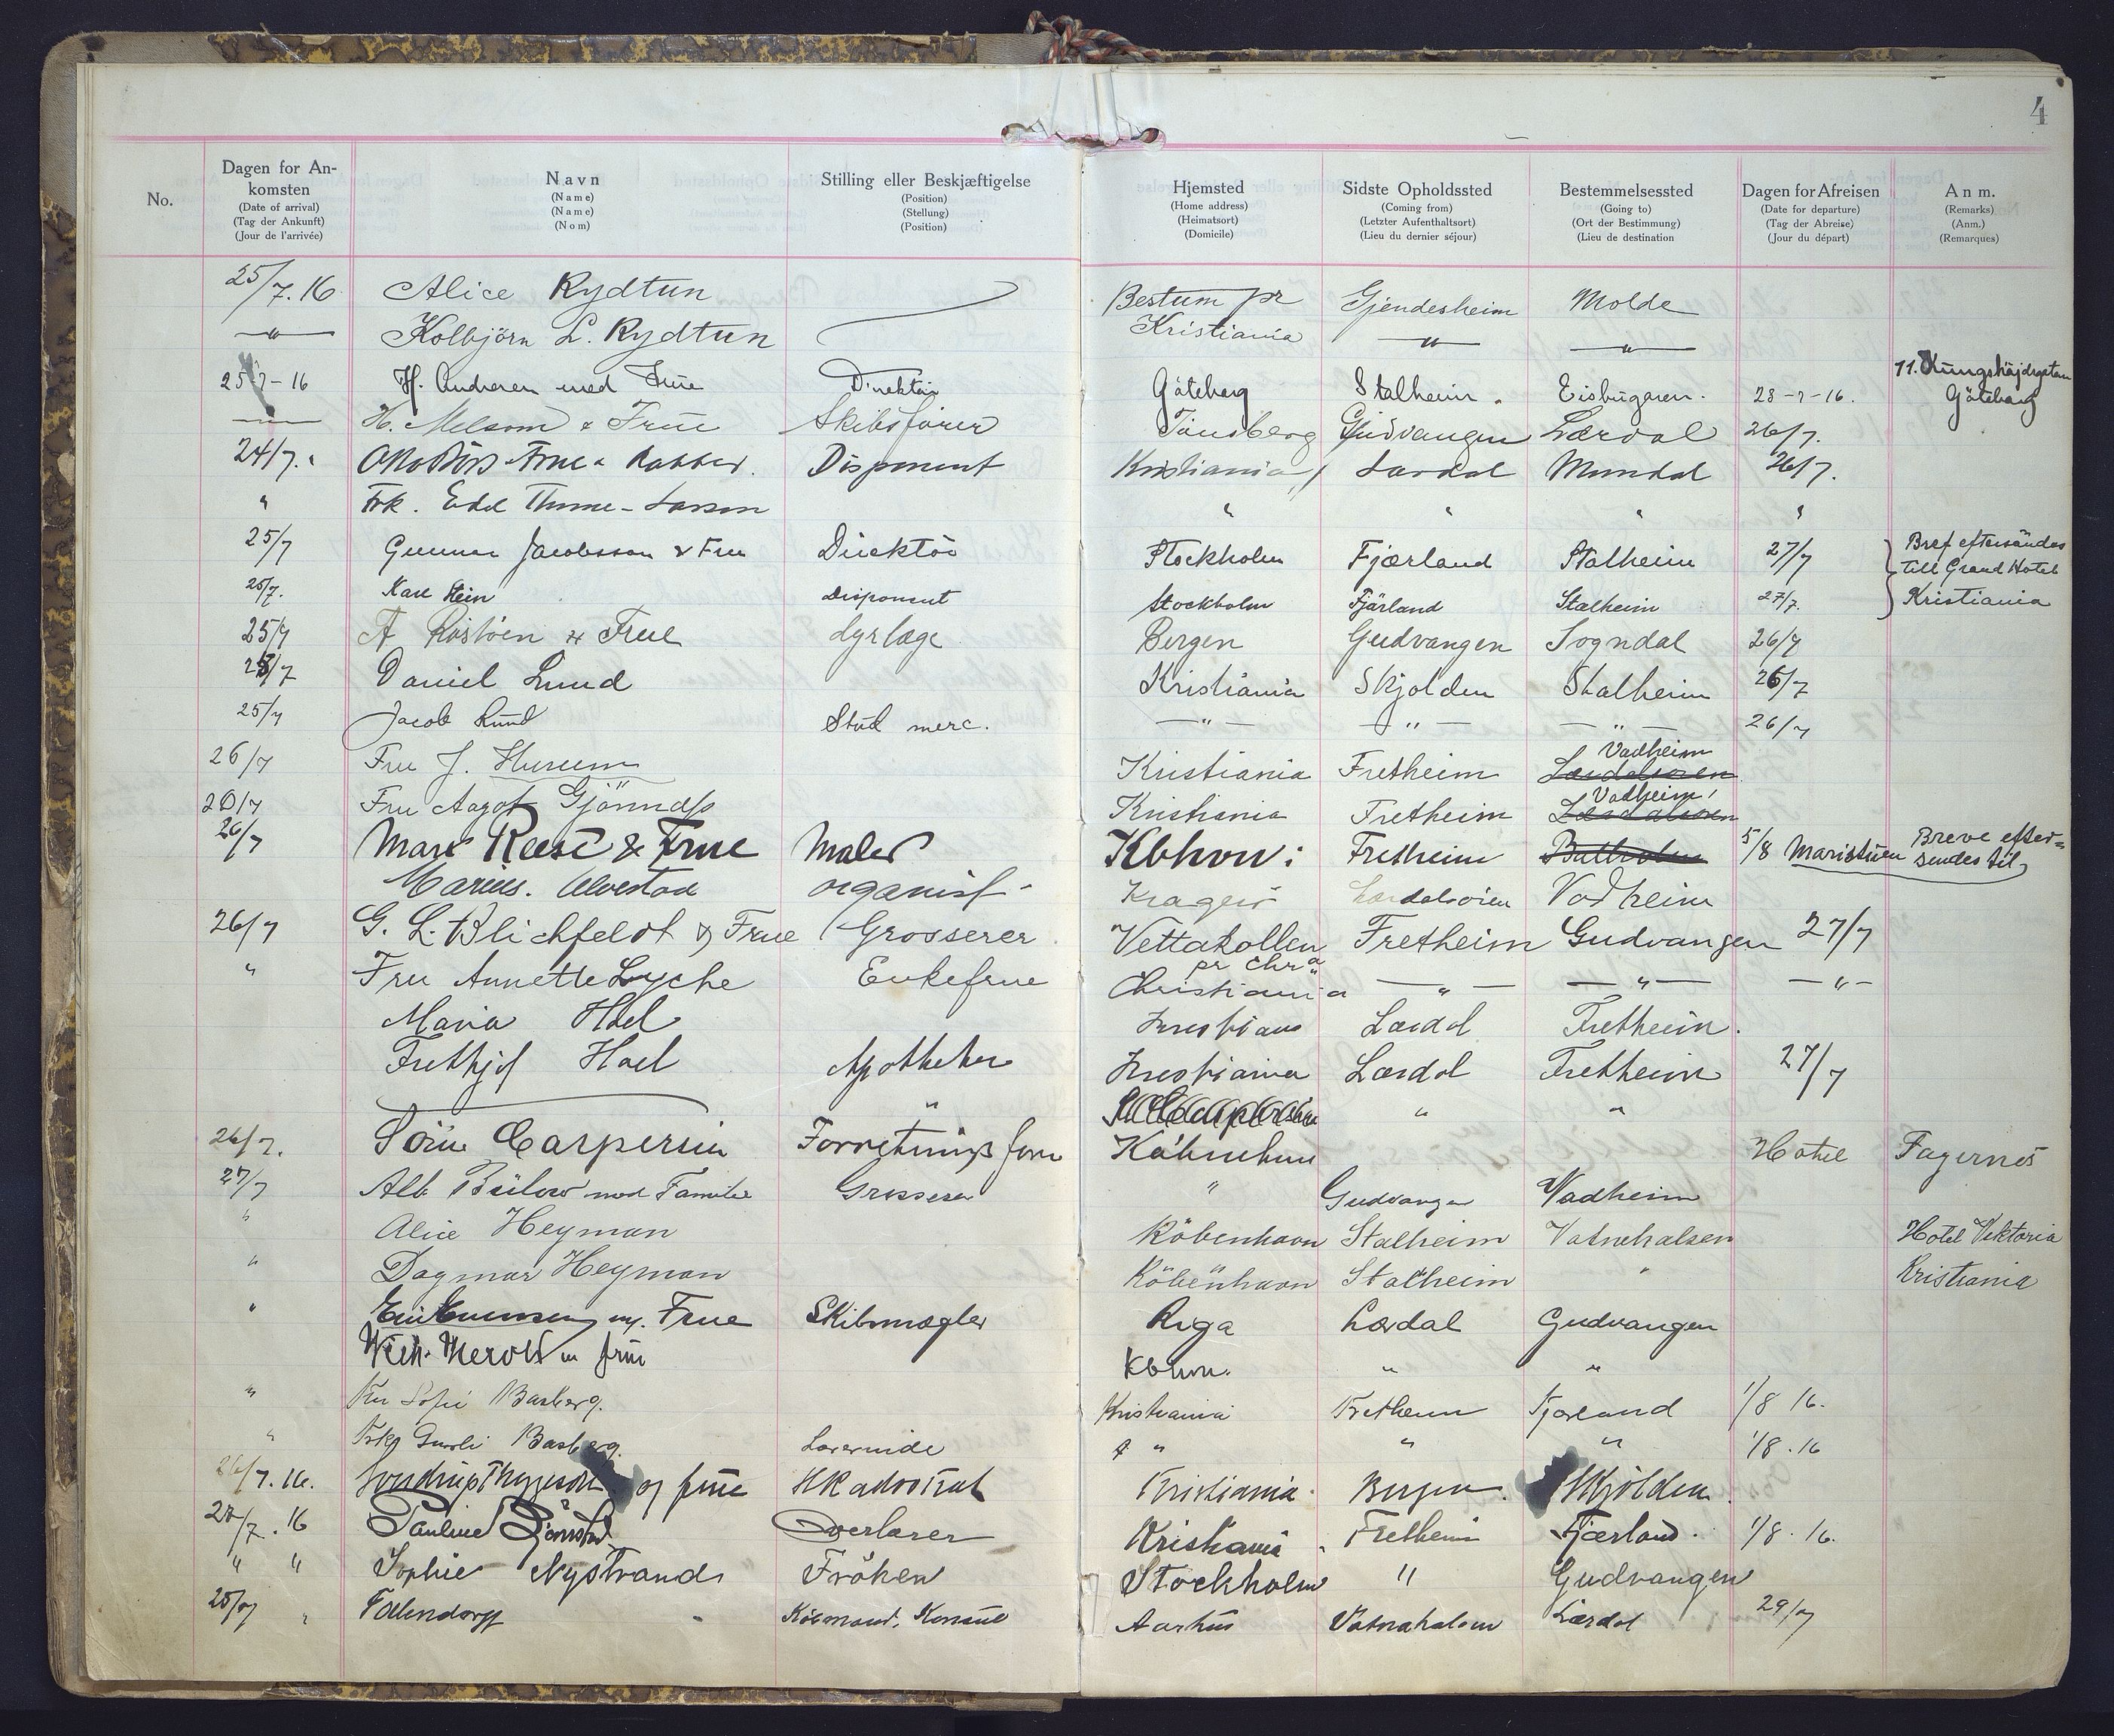 4
No. Dagen for An-komsten (Date of arrival) (Tag der Ankunft) (Jour de l'arrivée) Navn (Name) (Name) (Nom) Stilling eller Beskjæftigelse (Position) (Stellung) (Position) Hjemsted (Home address) (Heimatsort) (Domicile) Sidste Opholdssted (Coming from) (Letzter Aufenthaltsort) (Lieu du dernier séjour) Bestemmelsessted (Going to) (Ort der Bestimmung) (Lieu de destination Dagen for Afreisen (Date for departure) (Tag der Abreise) (Jour du départ) Anm. (Remarks) (Anm.) (Remarques)
25/7. 16 Alice Rydtun Bestum pr Kristiania Gjendesheim Molde
— " — Kolbjörn L. Rydtun — " — — " —
25/7-16 H. Andresen med Frue Direktör Göteborg Stalheim. Eisbugaren. 28-7-16. 11. Kungshöjdsgatan Göteborg
— H. Melsom & Frue Skibsfører Tönsberg Gudvangen Lærdal 26/7.
24/7. Frue Disponent Kristiania Lærdal Mundal 26/7.
" Frk. Edel Thune-Larsen " " " "
25/7 Gunnar Jacobsson & Fru Direktör Stockholm Fjærland Stalheim 27/7 Bref eftersändes till Grand Hotel
25/7. Karl Stein Disponent Stockholm Fjärland Stalheim 27/7. Kristiania
25/7 A Röstöen & Frue dyrlæge Bergen Gudvangen Sogndal 26/7
25/7 Daniel Lund Kristiania Skjolden Stalheim 26/7
25/7 Jacob Lund Stud merc. — " — — " — — " — 26/7
26/7 Fru J. Hurum Kristiania Fretheim Lærdalsören Vadheim
26/7 Fru Aagot Kristiania Fretheim Lærdalsören Vadheim
26/7 & Frue Maler Kbhvn: Fretheim Balholm 5/8 Maristuen Breve efter=sendes til
Marius. Alvestad organist Kragerö Lærdalsören Vadheim
26/7 G. L. Blichfeldt & Frue Grosserer Vettakollen pr Chra Fretheim Gudvangen 27/7
" Fru Annette Lyche Enkefrue Christiania — " — — " — — " —
Maria Hoel Kristiania Lærdal Fretheim.
Frithjof Hoel Apotheker Kristiania Lærdal Fretheim 27/7
" " "
26/7. Caspersen Köbenhavn Hotel Fagernes
27/7 Alb Bülow med Familie Grosserer " Gudvangen Vadheim
" Alice Heyman Köbenhavn Stalheim Vatnehalsen Hotel Viktoria
" Dagmar Heyman Köbenhavn Stalheim " Kristiania
" m. Frue Skibsmægler Riga Lærdal Gudvangen
Herold m frue Kbhvn. " "
" Fru Sofie Basberg. Kristiania Fretheim Fjærland 1/8 16.
" Frk Basberg. Lærerinde " " " 1/8.16
26/7.16. og frue HR advokat Kristiania Bergen. Skjolden.
27/7.16 Pauline Overlærer Kristiania Fretheim Fjærland. 1/8.16.
" " Sophie Nystrand Fröken Stockholm " Gudvangen
25/7 " Købmand, Konsul Aarhus Vatnahalsen Lærdal 29/7